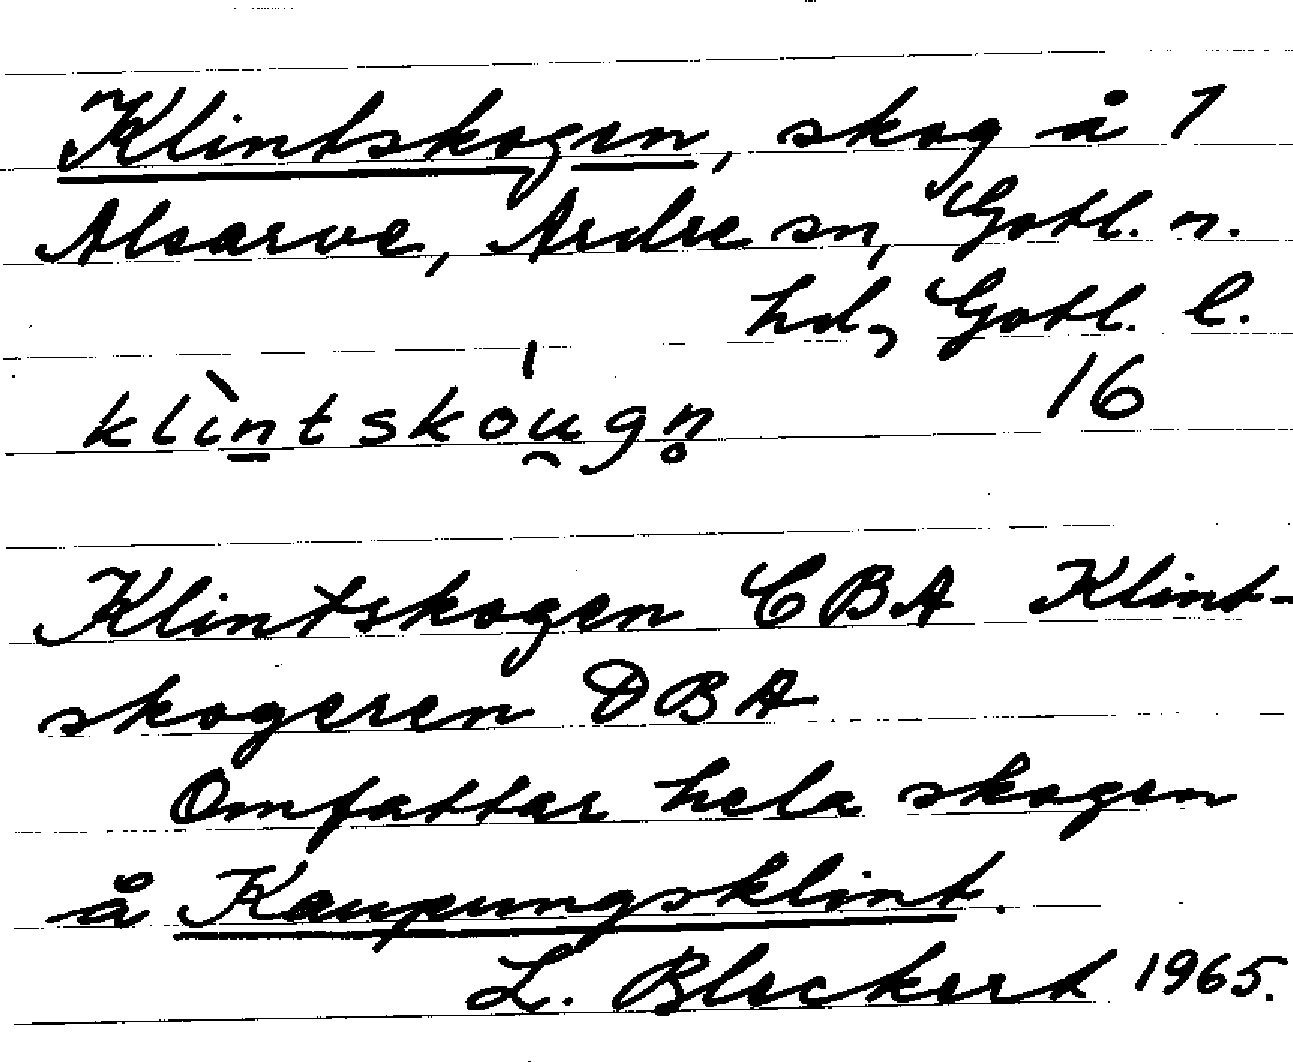 Klintskogen, skog å 1
Alsarve, Ardre sn, Gotl. n.
hd, Gotl. l.
16
klìn̲tsko̍u̯gn̥
Klintskogen CBA Klint-
skogeren DBA
Omfattar hela skogen
å Kaupungsklint.
L. Bleckert 1965.